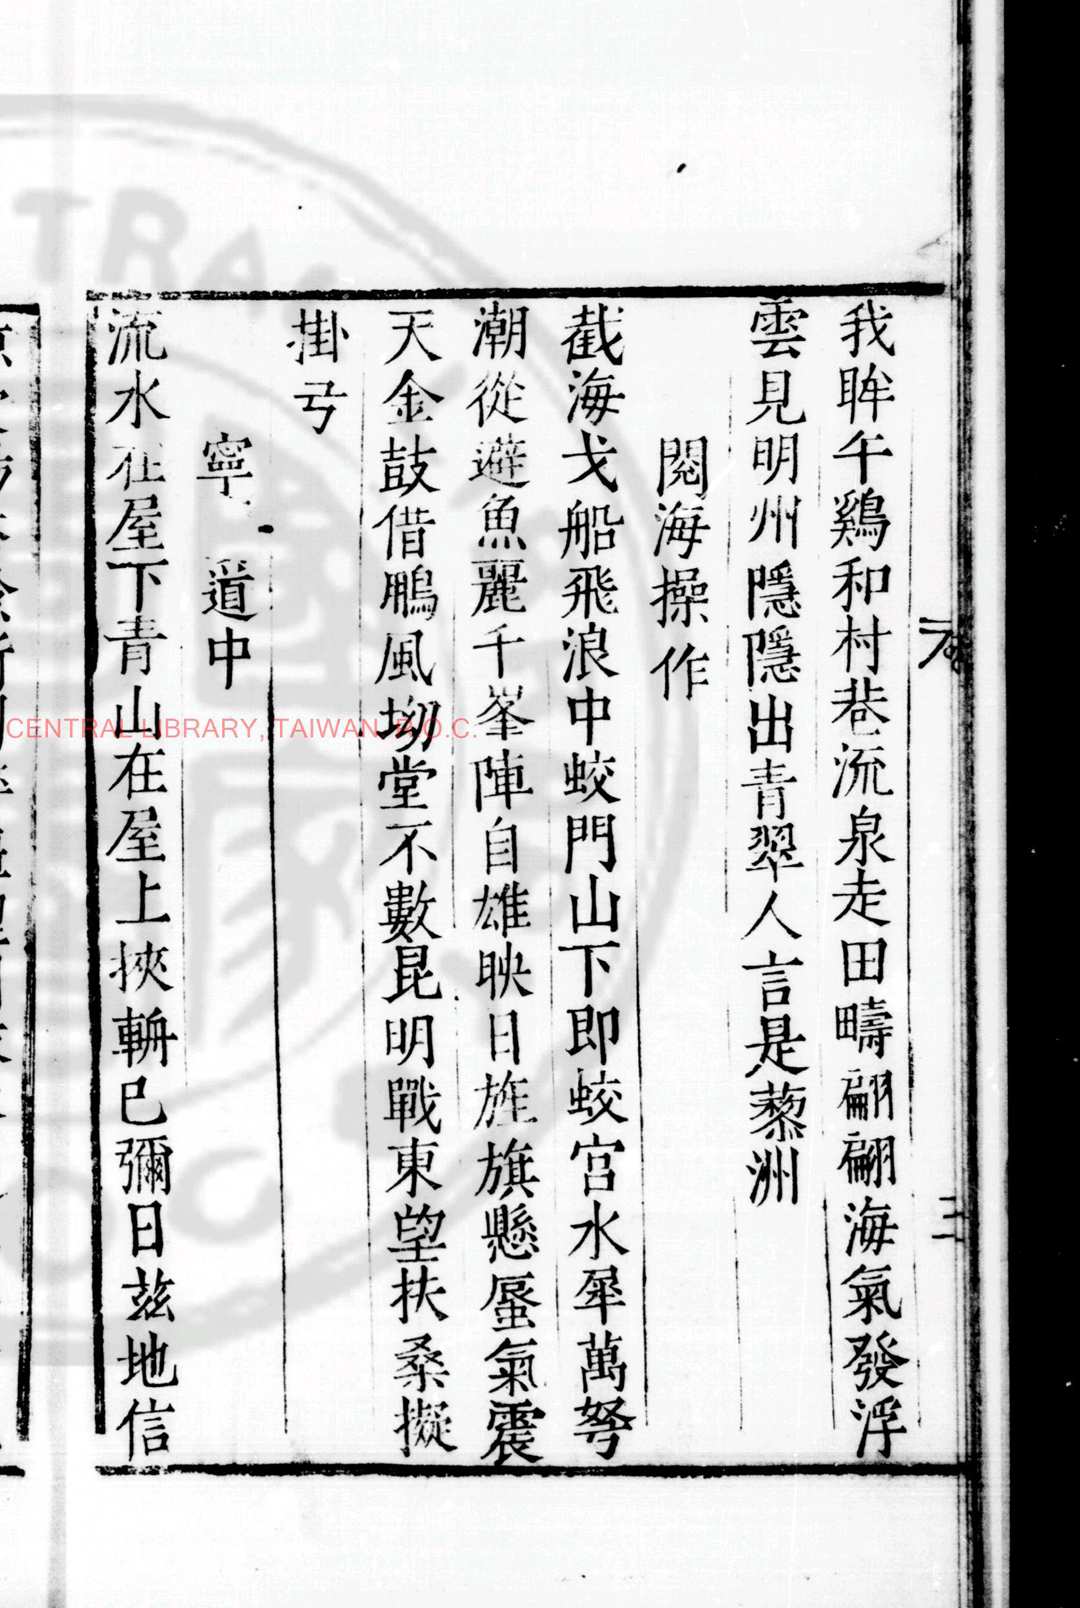 我眸午鷄和村巷流泉走田疇翩翩海氣發浮
雲見明州隱隱出青翠人言是藜洲
閱海操作
截海戈船飛浪中蛟門山下即蛟宮水犀萬弩
潮從避魚麗千峯陣自雄映日旌旗懸蜃氣震
天金鼓借鵬風坳堂不數昆明戰東望扶桑擬
掛弓
寧 道中
流水在屋下青山在屋上挾輈已彌日茲地信
CENTRAL LIBRARY, TAIWAN, R.O.C.